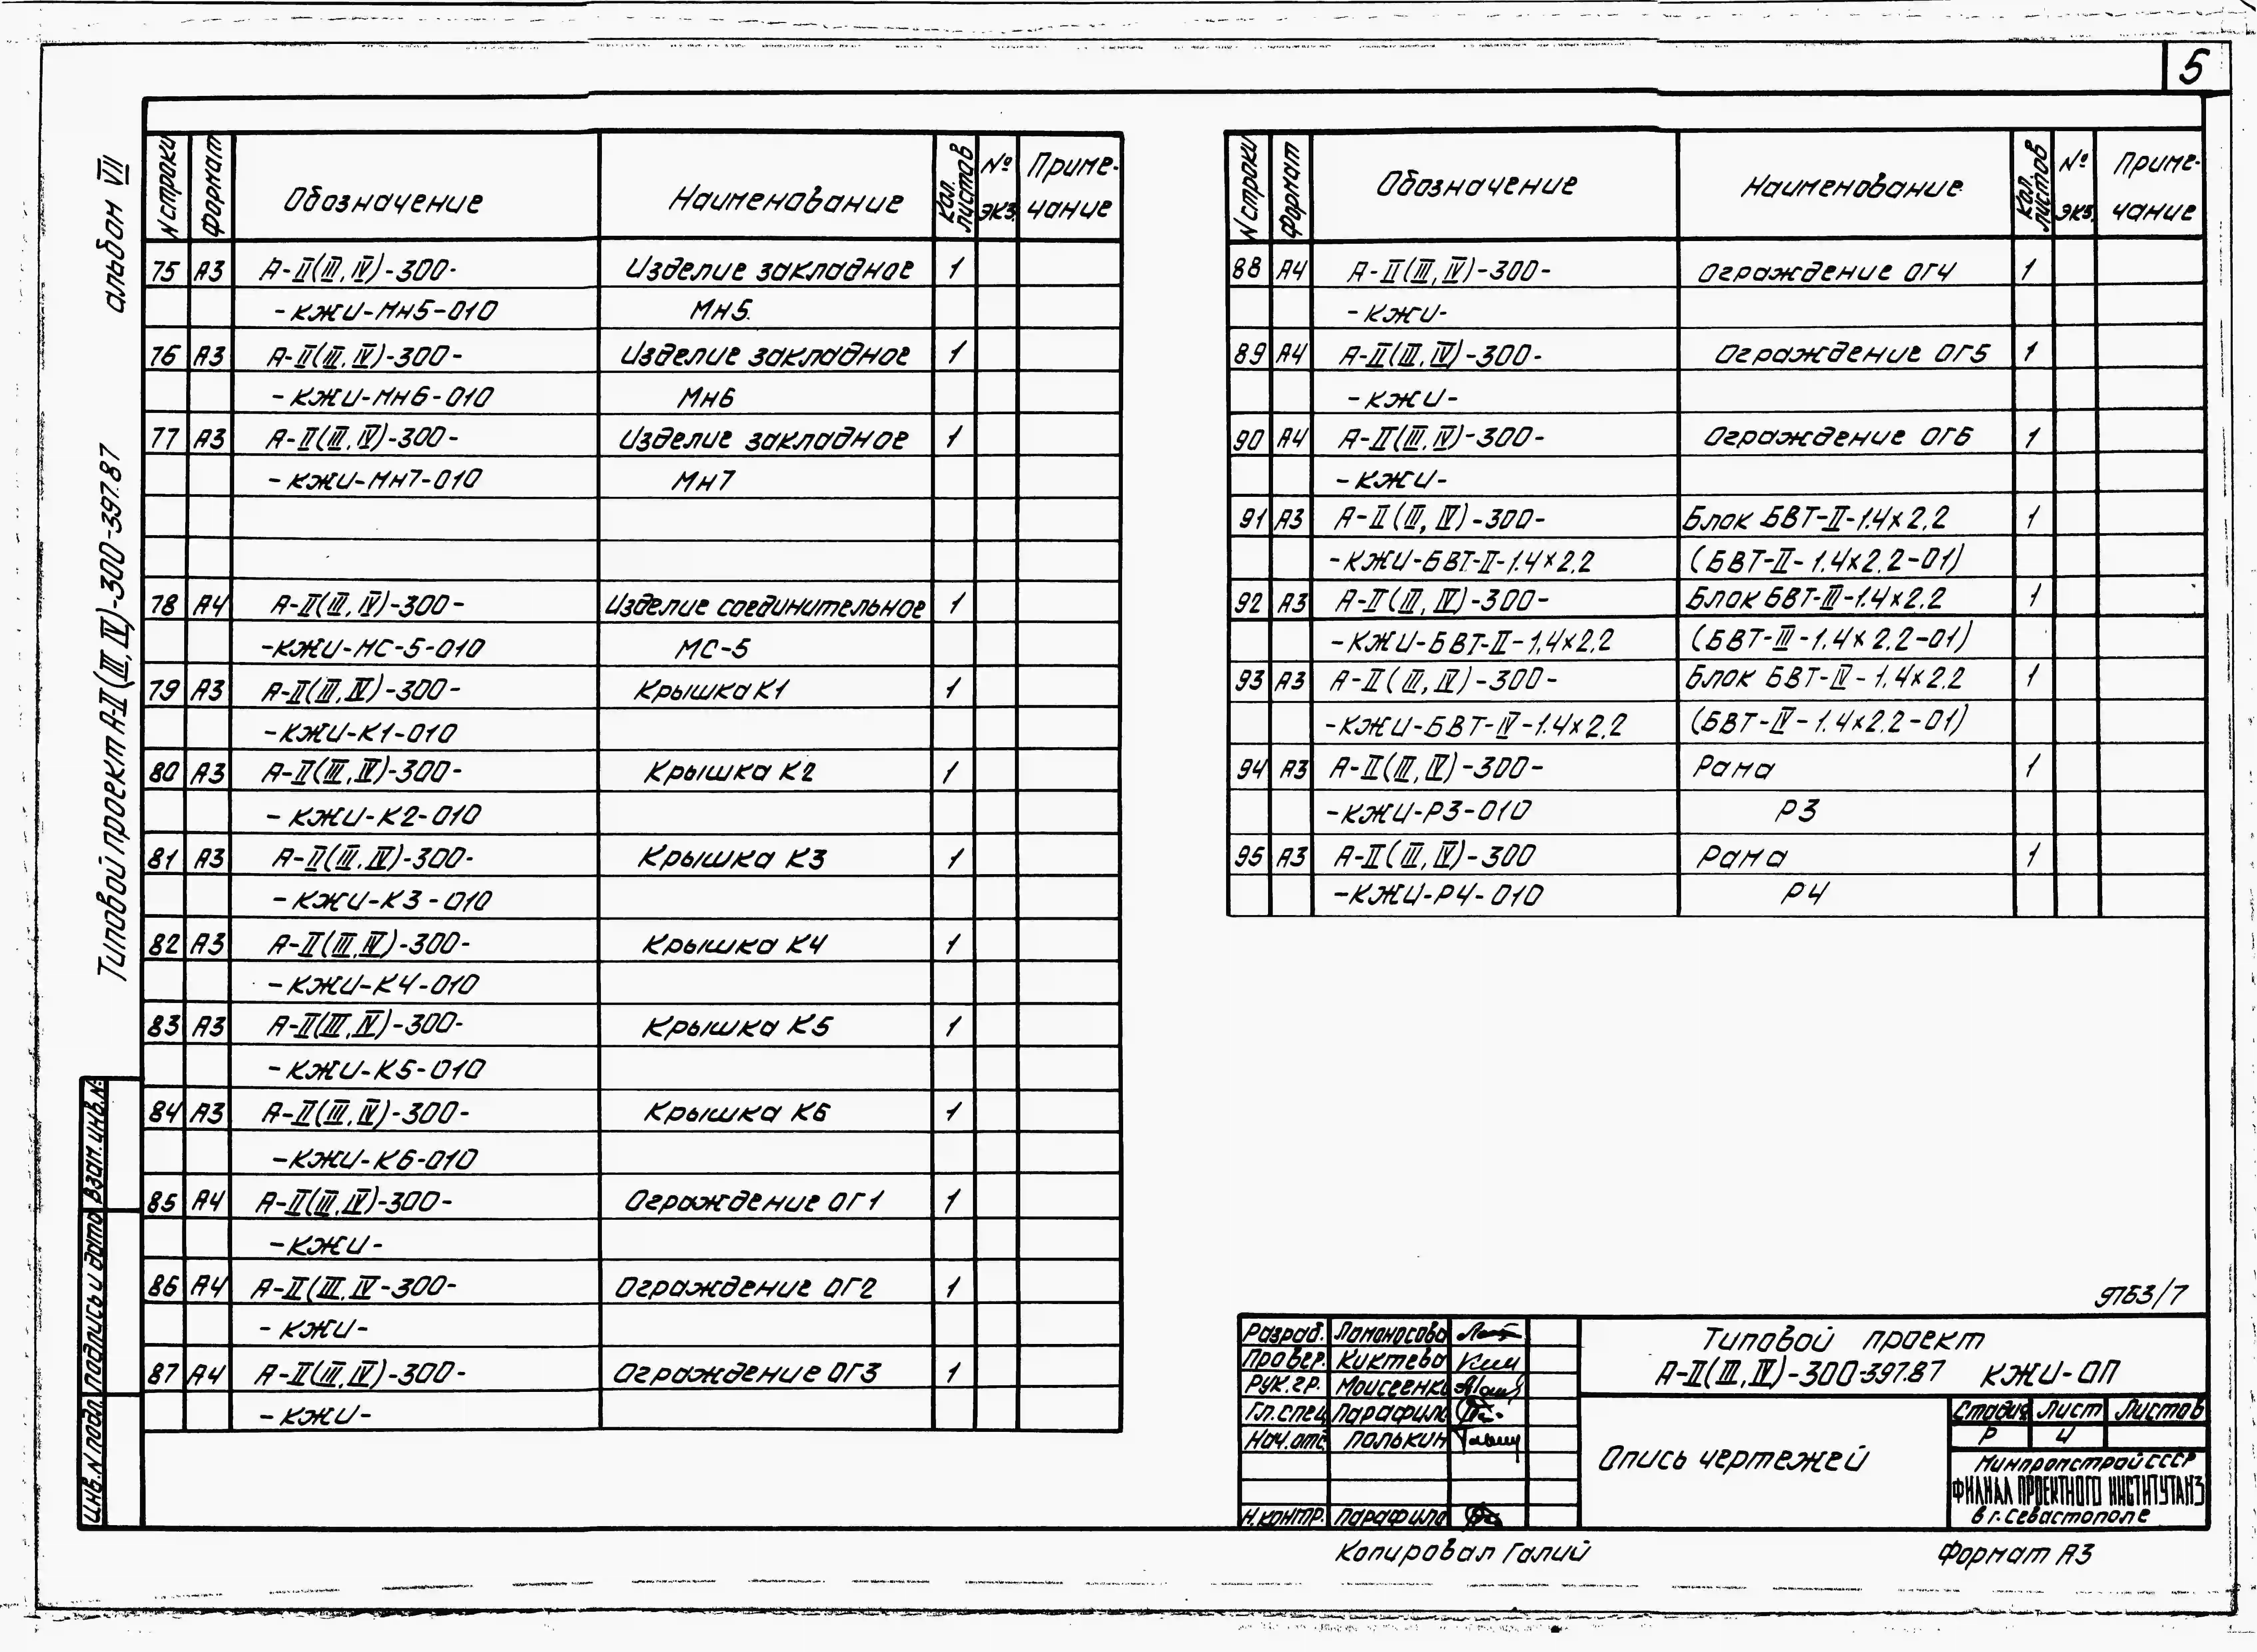 5
альбом VII
Типовой проект А-II(III, IV)-300-397.87
Взам. инв. №
Подпись и дата
Инв. N подл.
N строки Формат Обозначение Наименование Кол. листов № экз. Примечание
75 А3 А-II(III, IV)-300- Изделие закладное 1
-КЖИ-Мн5-010 Мн5.
76 А3 А-II(III, IV)-300- Изделие закладное 1
-КЖИ-Мн6-010 Мн6
77 А3 А-II(III, IV)-300- Изделие закладное 1
-КЖИ-Мн7-010 Мн7
78 А4 А-II(III, IV)-300- Изделие соединительное 1
-КЖИ-МС-5-010 МС-5
79 А3 А-II(III, IV)-300- Крышка К1 1
-КЖИ-К1-010
80 А3 А-II(III, IV)-300- Крышка К2 1
-КЖИ-К2-010
81 А3 А-II(III, IV)-300- Крышка К3 1
-КЖИ-К3-010
82 А3 А-II(III, IV)-300- Крышка К4 1
-КЖИ-К4-010
83 А3 А-II(III, IV)-300- Крышка К5 1
-КЖИ-К5-010
84 А3 А-II(III, IV)-300- Крышка К6 1
-КЖИ-К6-010
85 А4 А-II(III, IV)-300- Ограждение ОГ1 1
-КЖИ-
86 А4 А-II(III, IV-300- Ограждение ОГ2 1
-КЖИ-
87 А4 А-II(III, IV)-300- Ограждение ОГ3 1
-КЖИ-
N строки Формат Обозначение Наименование Кол. листов № экз. Примечание
88 А4 А-II(III, IV)-300- Ограждение ОГ4 1
-КЖИ-
89 А4 А-II(III, IV)-300- Ограждение ОГ5 1
-КЖИ-
90 А4 А-II(III, IV)-300- Ограждение ОГ6 1
-КЖИ-
91 А3 А-II(III, IV)-300- Блок БВТ-II-1.4х2.2 1
-КЖИ-БВТ-II-1.4х2.2 (БВТ-II-1.4х2.2-01)
92 А3 А-II(III, IV)-300- Блок БВТ-III-1.4х2.2 1
-КЖИ-БВТ-II-1.4х2.2 (БВТ-III-1.4х2.2-01)
93 А3 А-II(III, IV)-300- Блок БВТ-IV-1.4х2.2 1
-КЖИ-БВТ-IV-1.4х2.2 (БВТ-IV-1.4х2.2-01)
94 А3 А-II(III, IV)-300- Рама 1
-КЖИ-Р3-010 Р3
95 А3 А-II(III, IV)-300 Рама 1
-КЖИ-Р4-010 Р4
Разраб. Ломоносова
Провер. Киктева
Рук. гр. Моисеенко
Гл. спец Парафило
Нач. отд Полькин
Н. контр. Парафило
Типовой проект
А-II(III, IV)-300-397.87 КЖИ-ОП
Опись чертежей
Стадия Лист Листов
Р 4
Минпромстрой СССР
ФИЛИАЛ ПРОЕКТНОГО ИНСТИТУТА N3
в г. Севастополе
Копировал Галий
Формат А3